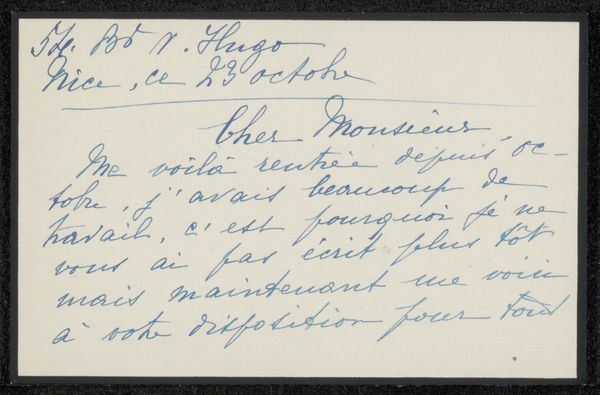 54. Bd V. Hugo
Nice, ce 23 octobre
Cher Monsieur,
Me voilà rentrée depuis oc-
tobre, j'avais beaucoup de
travail, c'est pourquoi je ne
vous ai pas écrit plus tôt
mais maintenant me voici
à votre disposition pour tous